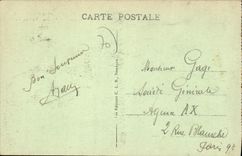 CARTE POSTALE
70
Bon Souvenir
Monsieur Gagé
Société Générale
Agence AX
2 Rue Blanche
Paris 9e